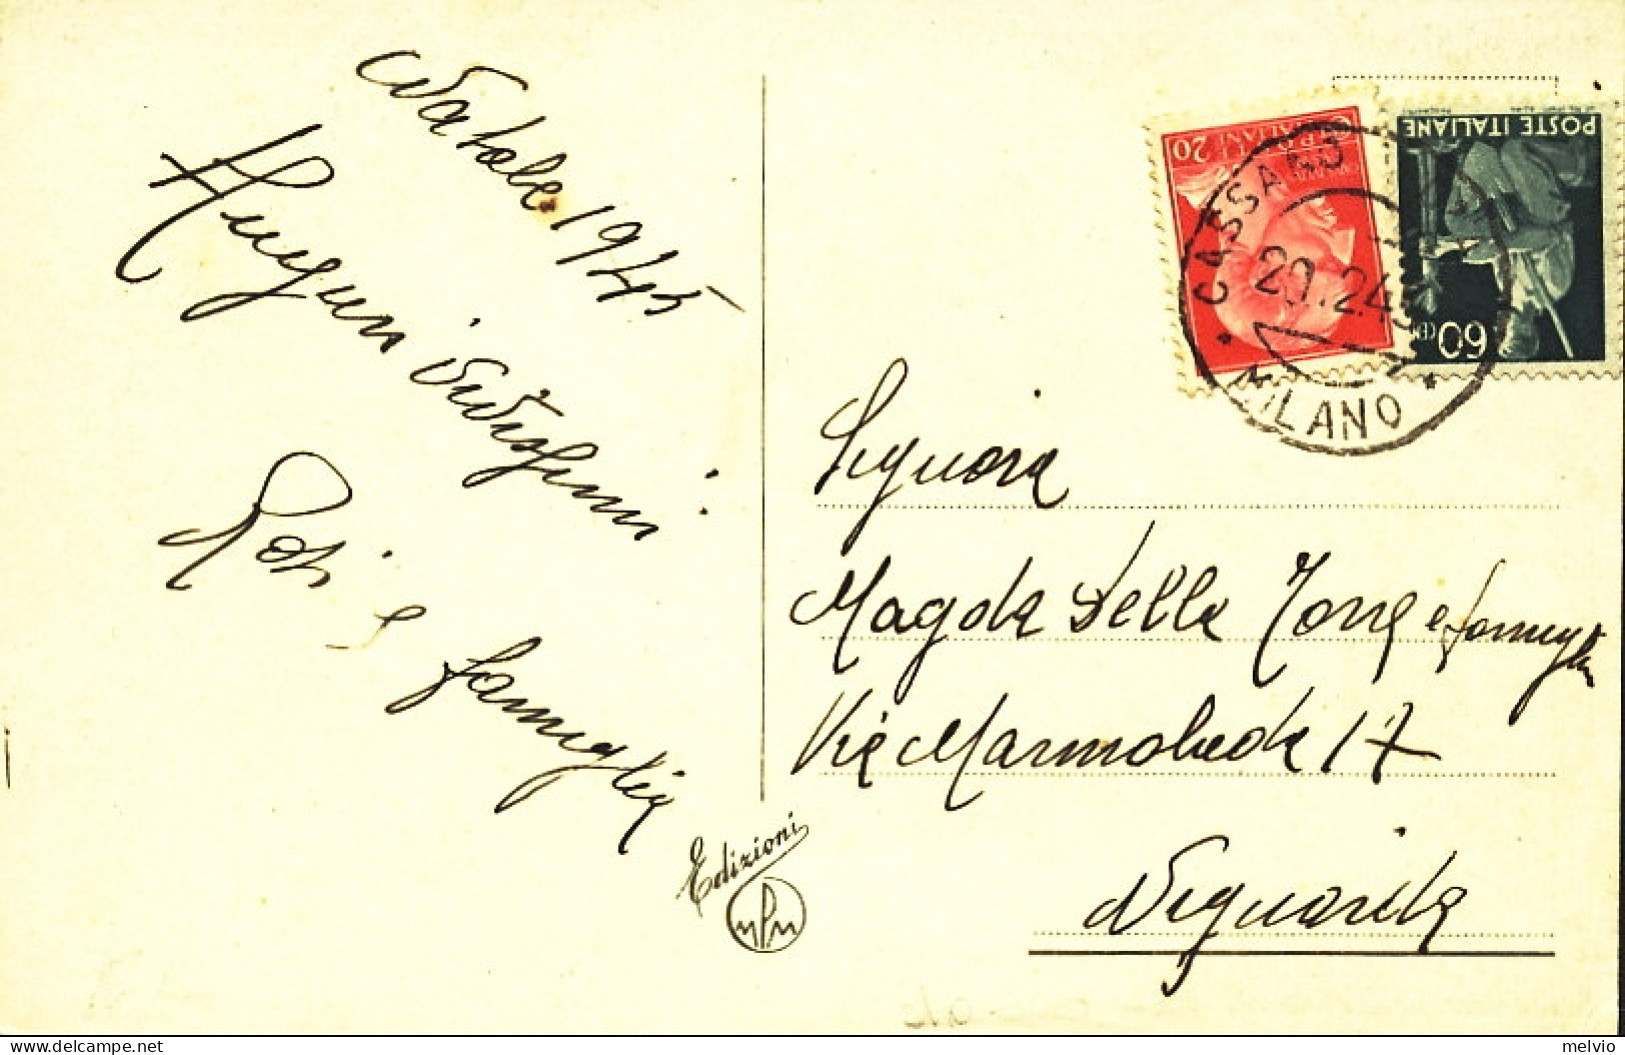 Natale 1945
Auguri vivissimi
Rosi e famiglia
Edizioni
POSTE ITALIANE
60
20
CASSANO
20.12.45
MILANO
Signora
Magda Della Torre e famiglia
Via Marmolada 17
Niguarda
melvio